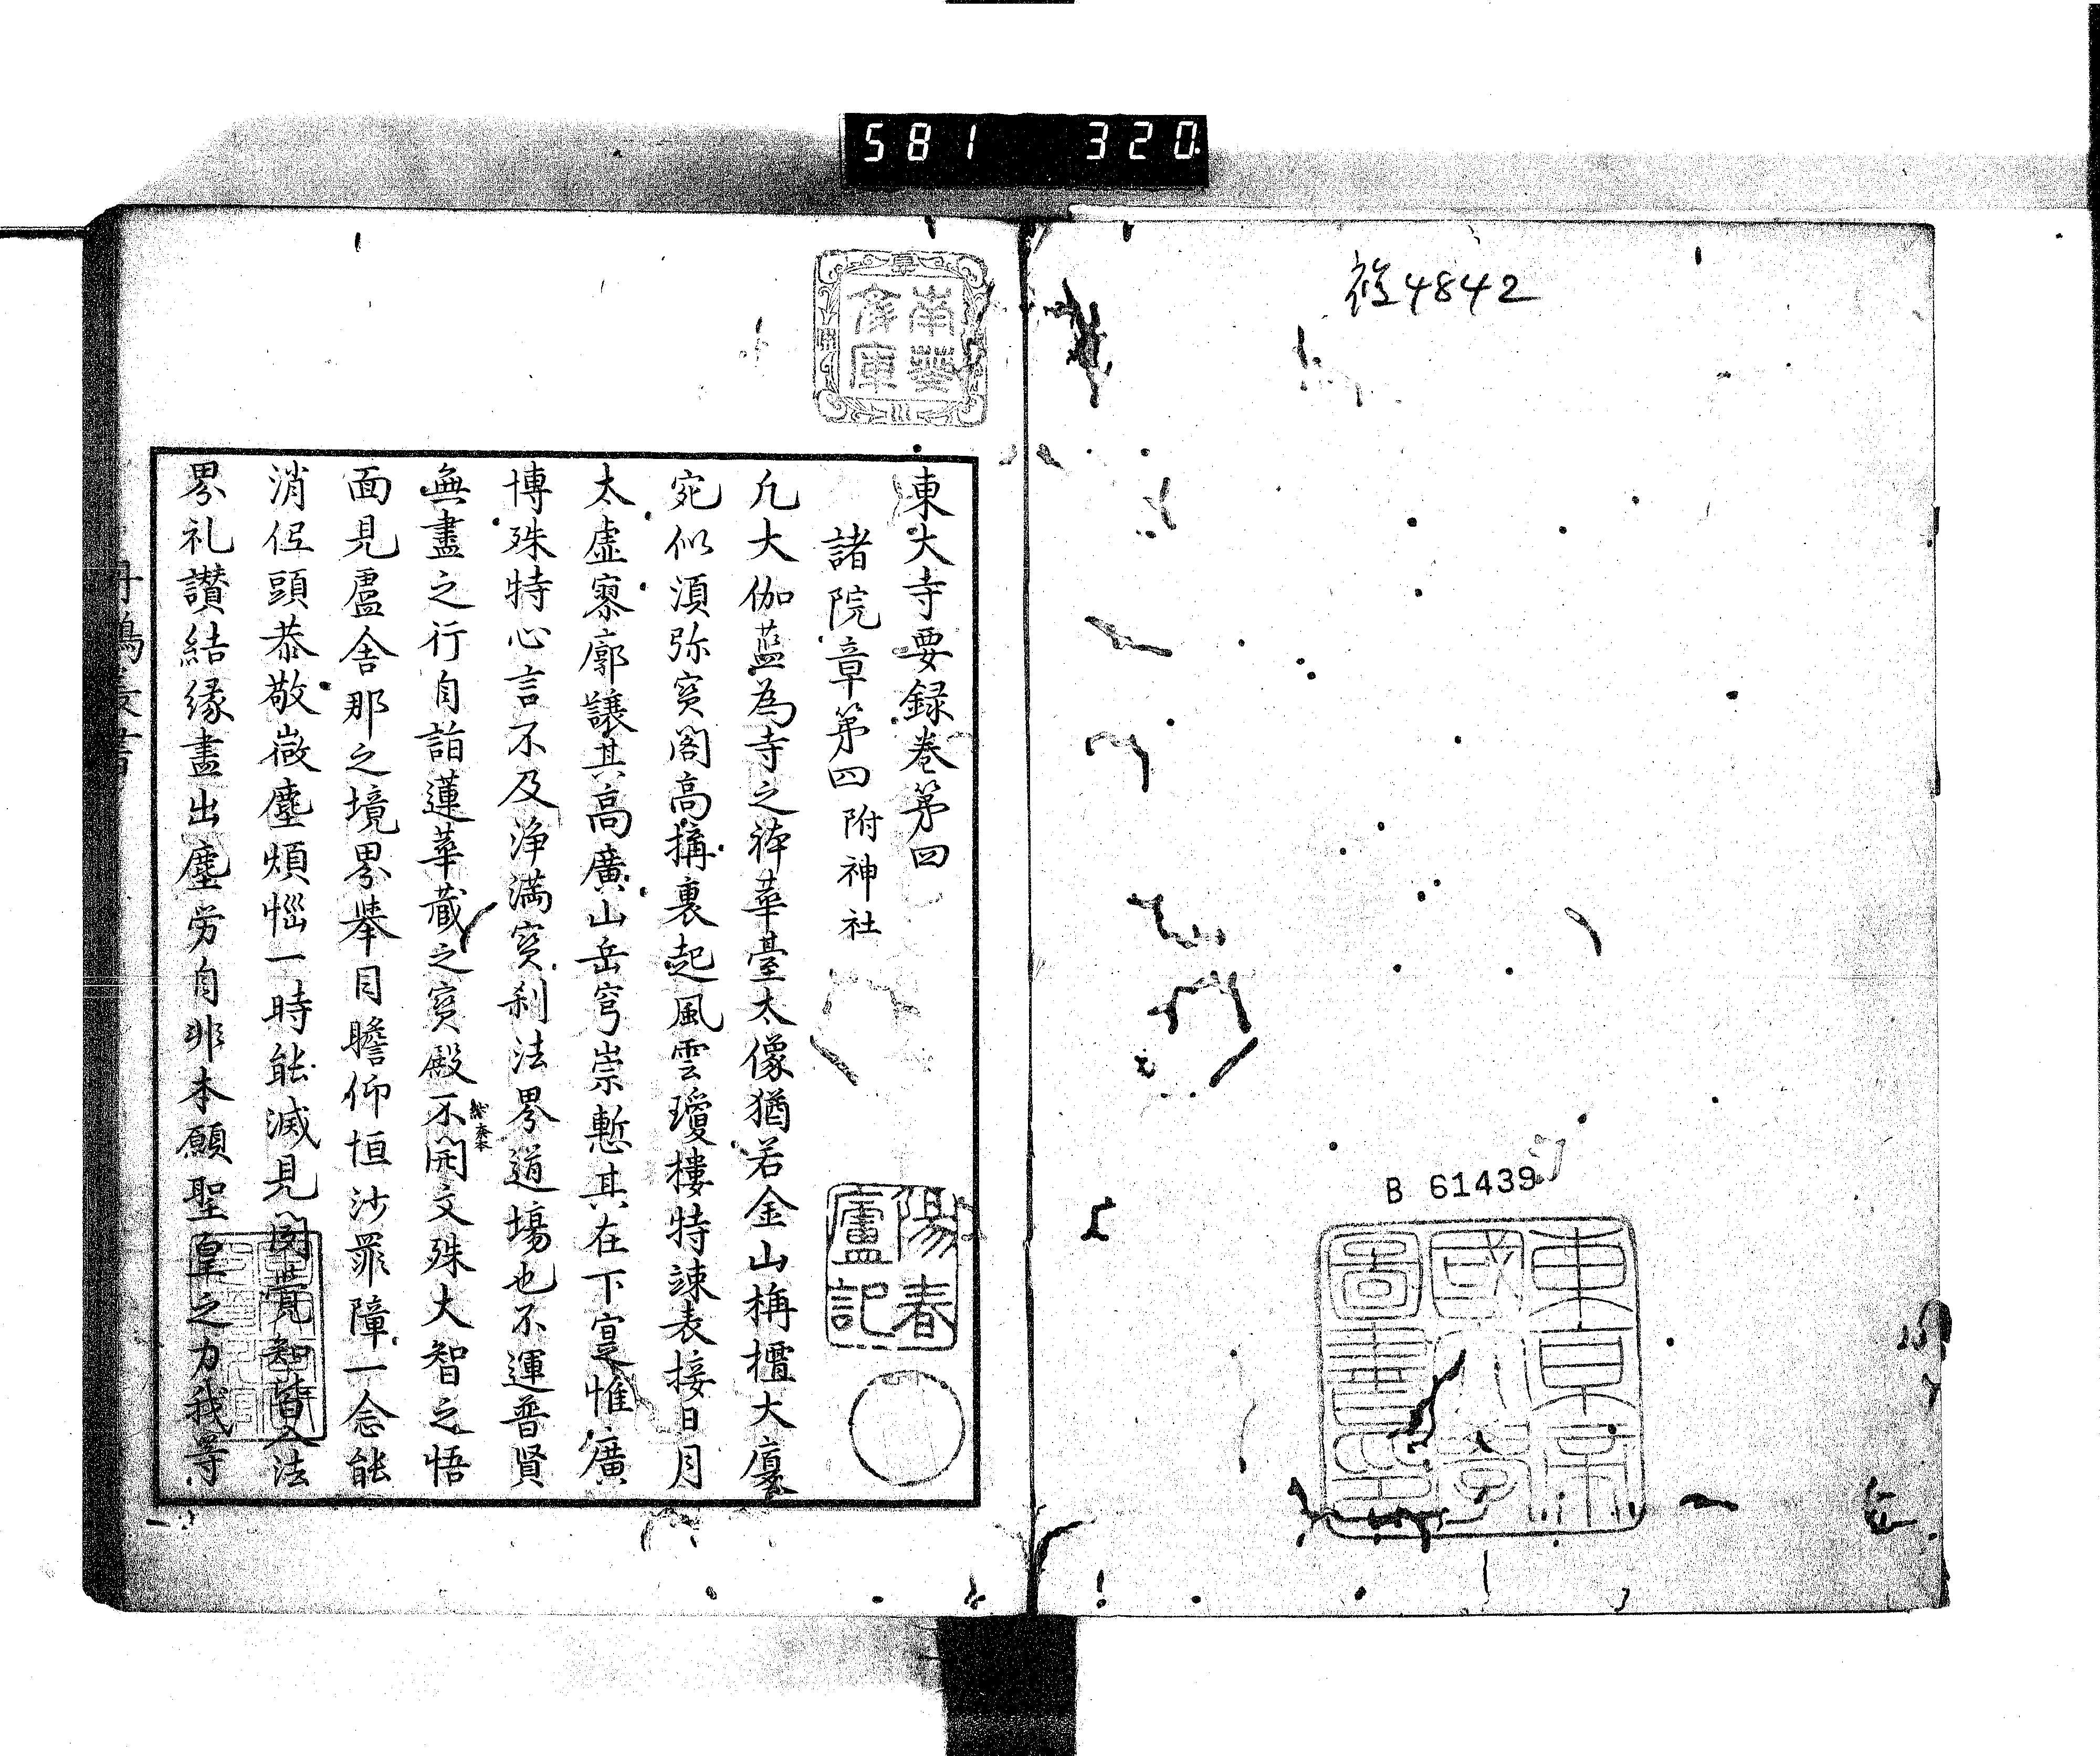 581 320
複4842
B 61439
東京帝
國大學
圖書印
東大寺要録巻第四
諸院章第四 附神社
陽春
廬記
凢大伽藍為寺之𥙿華臺大像猶若金山栴檀大廈
宛似須弥寳閣高搆裏起風雲瓊樓特竦表接日月
太虚寥廓譲其高廣山岳穹崇慙其在下寔惟廣
博殊特心言不及浄満寳刹法界道場也不運普賢
無盡之行自詣蓮華蔵之寳殿不開文殊大智之悟
面見盧舎那之境界挙目瞻仰恒沙罪障一念能
消低頭恭敬微塵煩惱一時能滅見聞覺知皆入法
界礼讃結縁盡出塵労自非本願聖皇之力我等